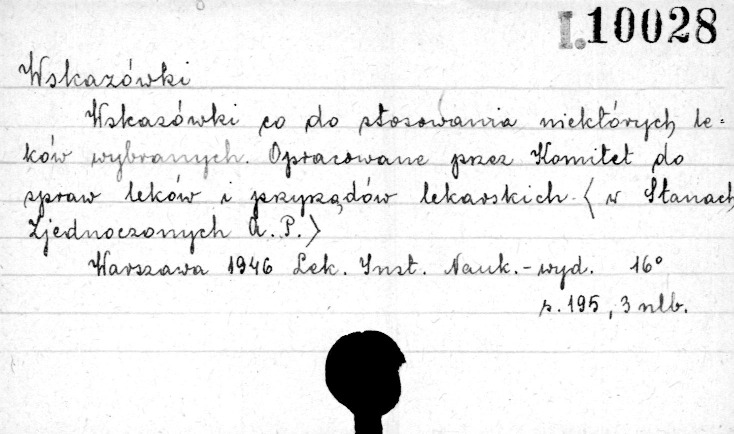 I.10028
Wskazówki
Wskazówki co do stosowania niektórych le=
ków wybranych. Opracowane przez Komitet do
spraw leków i przyrządów lekarskich. <w Stanach
Zjednoczonych A. P.>
Warszawa 1946 Lek. Inst. Nauk.-wyd. 16°
s. 195, 3 nlb.